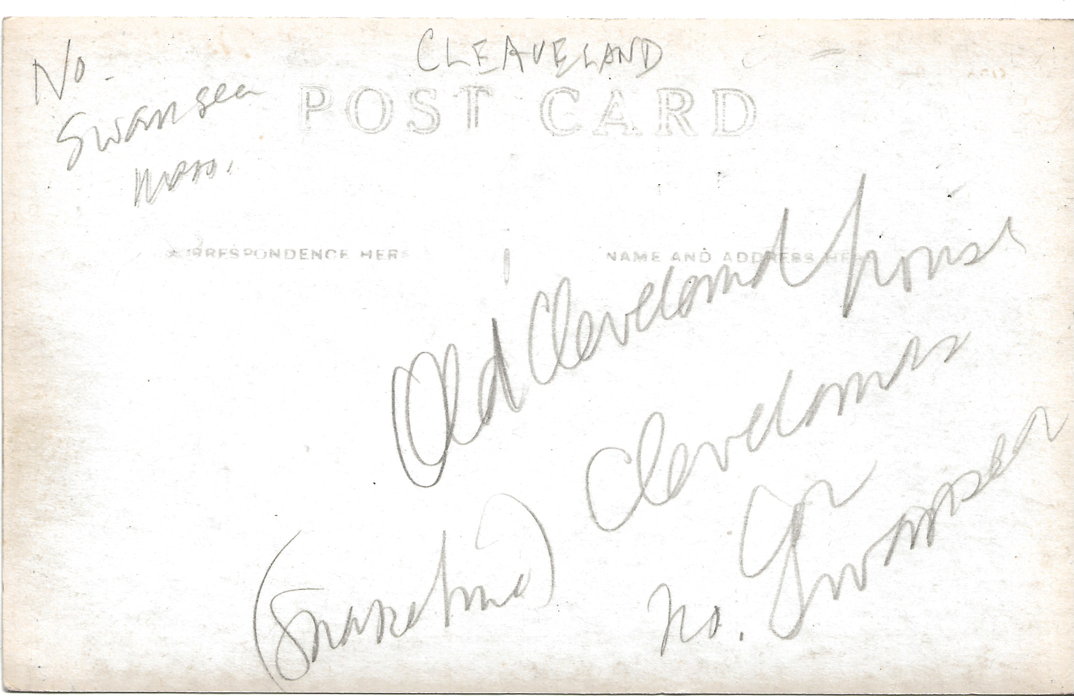 CLEAVELAND
No.
Swansea
Mass.
POST CARD
CORRESPONDENCE HERE
NAME AND ADDRESS HERE
Old Cleveland house
Clevelands
Cor
(Snake hind)
No. Swansea